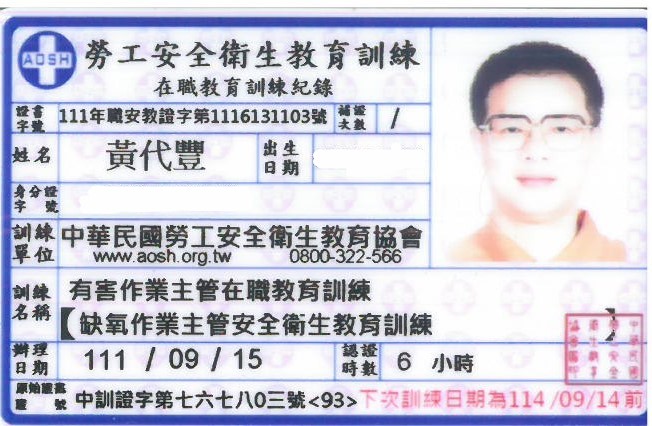 AOSH 勞工安全衛生教育訓練
在職教育訓練紀錄
證書字號 111年職安教證字第1116131103號 補證次數 /
姓名 黃代豐 出生日期
身分證字號
訓練單位 中華民國勞工安全衛生教育協會
www.aosh.org.tw 0800-322-566
訓練名稱 有害作業主管在職教育訓練
【缺氧作業主管安全衛生教育訓練】
辦理日期 111 / 09 / 15 認證時數 6 小時
原始證書證號 中訓證字第七六七八0三號<93> 下次訓練日期為114/09/14前